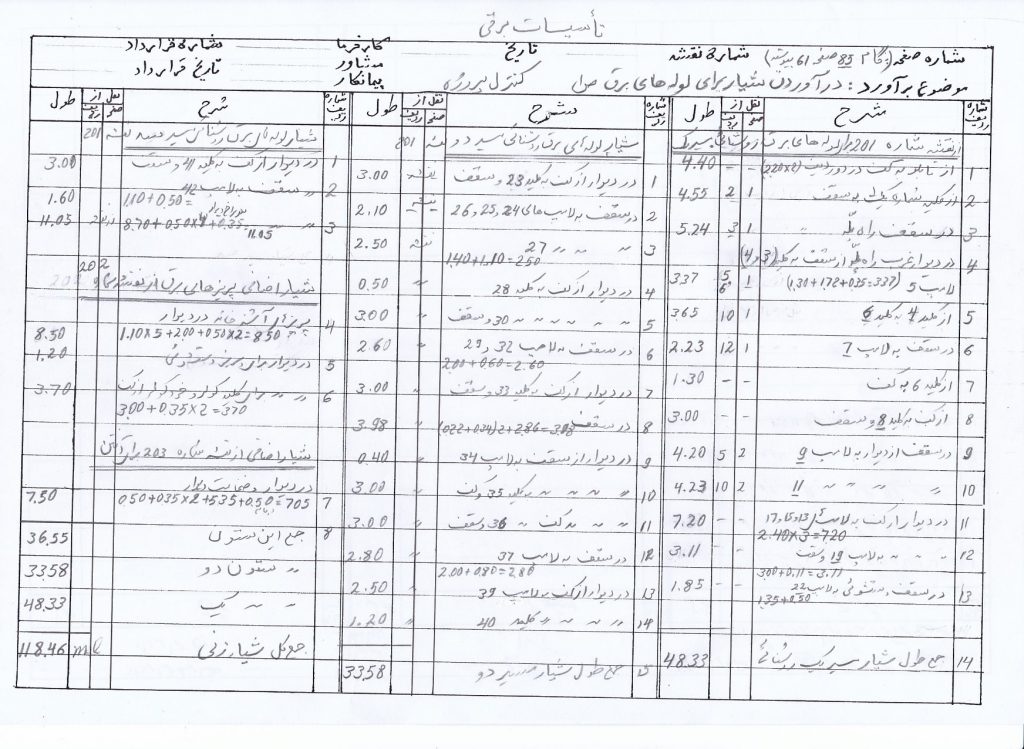 تأسیسات برقی
شماره صفحه( گام 85 صفحه 61 پیوسته) شماره نقشه تاریخ کارفرما شماره قرارداد
مشاور تاریخ قرارداد
موضوع برآورد: درآوردن شیار برای لوله های برق کنترل پروژه پیمانکار
شماره ردیف شرح نقل از صفحه ردیف طول
از نقشه شماره 201 برای لوله های برق روشنائی مسیر یک
1 از تابلو به کف در دو ردیف (2×220) - - 4.40
2 از کلید شماره یک به سقف 1 2 4.55
3 در سقف راه پله 1 3 5.24
4 در دیوار غرب راه پله از سقف به کلید (3 و 4)
لامپ 5 (1.30+1.72+0.35=3.37) 1 5 6 3.37
5 از کلید 4 به کلید 6 1 10 3.65
6 در سقف به لامپ 7 1 12 2.23
7 از کلید 6 به کف - - 1.30
8 از کف به کلید 8 و سقف - - 3.00
9 در سقف از دیوار به لامپ 9 2 5 4.20
10 " " " " 11 2 10 4.23
11 در دیوار از کف به لامپ های 13 و 15 و 17
2.40×3=720 - - 7.20
12 " " " به لامپ 19 و سقف
3.00+0.11=3.11 - - 3.11
13 در سقف دستشوئی به لامپ 22
1.35+0.50 - - 1.85
14 جمع طول شیار مسیر یک روشنائی 48.33
شماره ردیف شرح نقل از صفحه ردیف طول
شیار لوله های برق روشنائی مسیر دو نقشه 201
1 در دیوار از کف به کلید 23 و سقف نقشه 3.00
2 در سقف به لامپ های 24 ,25 ,26 نقشه 2.10
3 " " " 27
1.40+1.10=2.50 نقشه 2.50
4 در دیوار از کف به کلید 28 " 0.50
5 " " " " " 30 و سقف " 3.00
6 در سقف به لامپ 32 و 29
2.00+0.60=2.60 " 2.60
7 در دیوار از کف به کلید 33 و سقف " 3.00
8 در سقف (0.22+0.34)2+2.86=3.98 " 3.98
9 در دیوار از سقف به لامپ 34 " 0.40
10 " " " " به کلید 35 و کف " 3.00
11 " " " به کف " 36 و سقف " 3.00
12 در سقف به لامپ 37
2.00+0.80=2.80 " 2.80
13 در دیوار از کف به لامپ 39 " 2.50
14 " " " " کلید 40 " 1.20
15 جمع طول شیار مسیر دو 33.58
شماره ردیف شرح نقل از صفحه ردیف طول
شیار لوله های برق روشنائی مسیر سه نقشه 201
1 در دیوار از کف به کلید 41 و سقف 3.00
2 " سقف به لامپ 42
1.10+0.50= 1.60
3 8.70+0.50×4+0.35 11.05 201 11.05
شیار اضافی پریزهای برق از نقشه شماره 202
4 پریزهای آشپزخانه در دیوار
1.10×5+2.00+0.50×2=8.50 8.50
5 در دیوار برای پریز دستشوئی 1.20
6 " " برای کلید کولر و خود کولر از کف
3.00+0.35×2=3.70 3.70
شیار اضافی از نقشه شماره 203 برای آنتن
7 در دیوار و ضخامت دیوار
0.50+0.35×2+5.35+0.50=7.05 7.50
8 جمع این ستون 36.55
" ستون دو 33.58
" " یک 48.33
جمع کل شیار زنی 118.46 ml